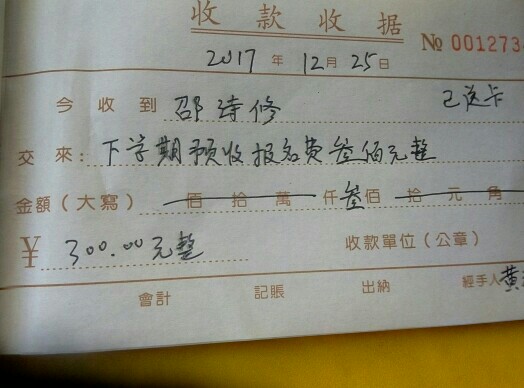 收款收据
2017 年 12 月 25 日 No 001273
今收到 邵诗修 已送卡
交来: 下学期预收报名费叁佰元整
金額(大寫) 佰 拾 萬 仟 叁 佰 拾 元 角
¥ 300.00元整 收款單位(公章)
會計 記賬 出納 經手人 黄